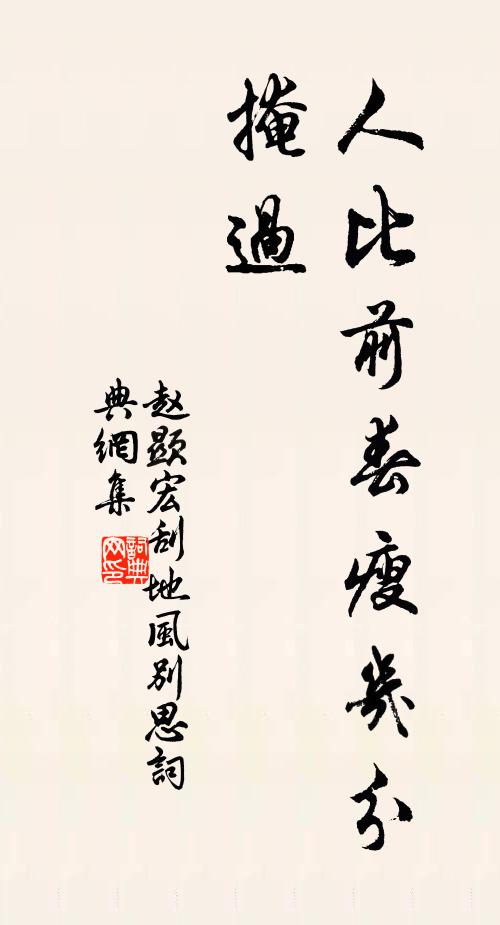 人比前春瘦幾分
掩過
赵顯宏刮地風别思詞
典網集
詞典
网印